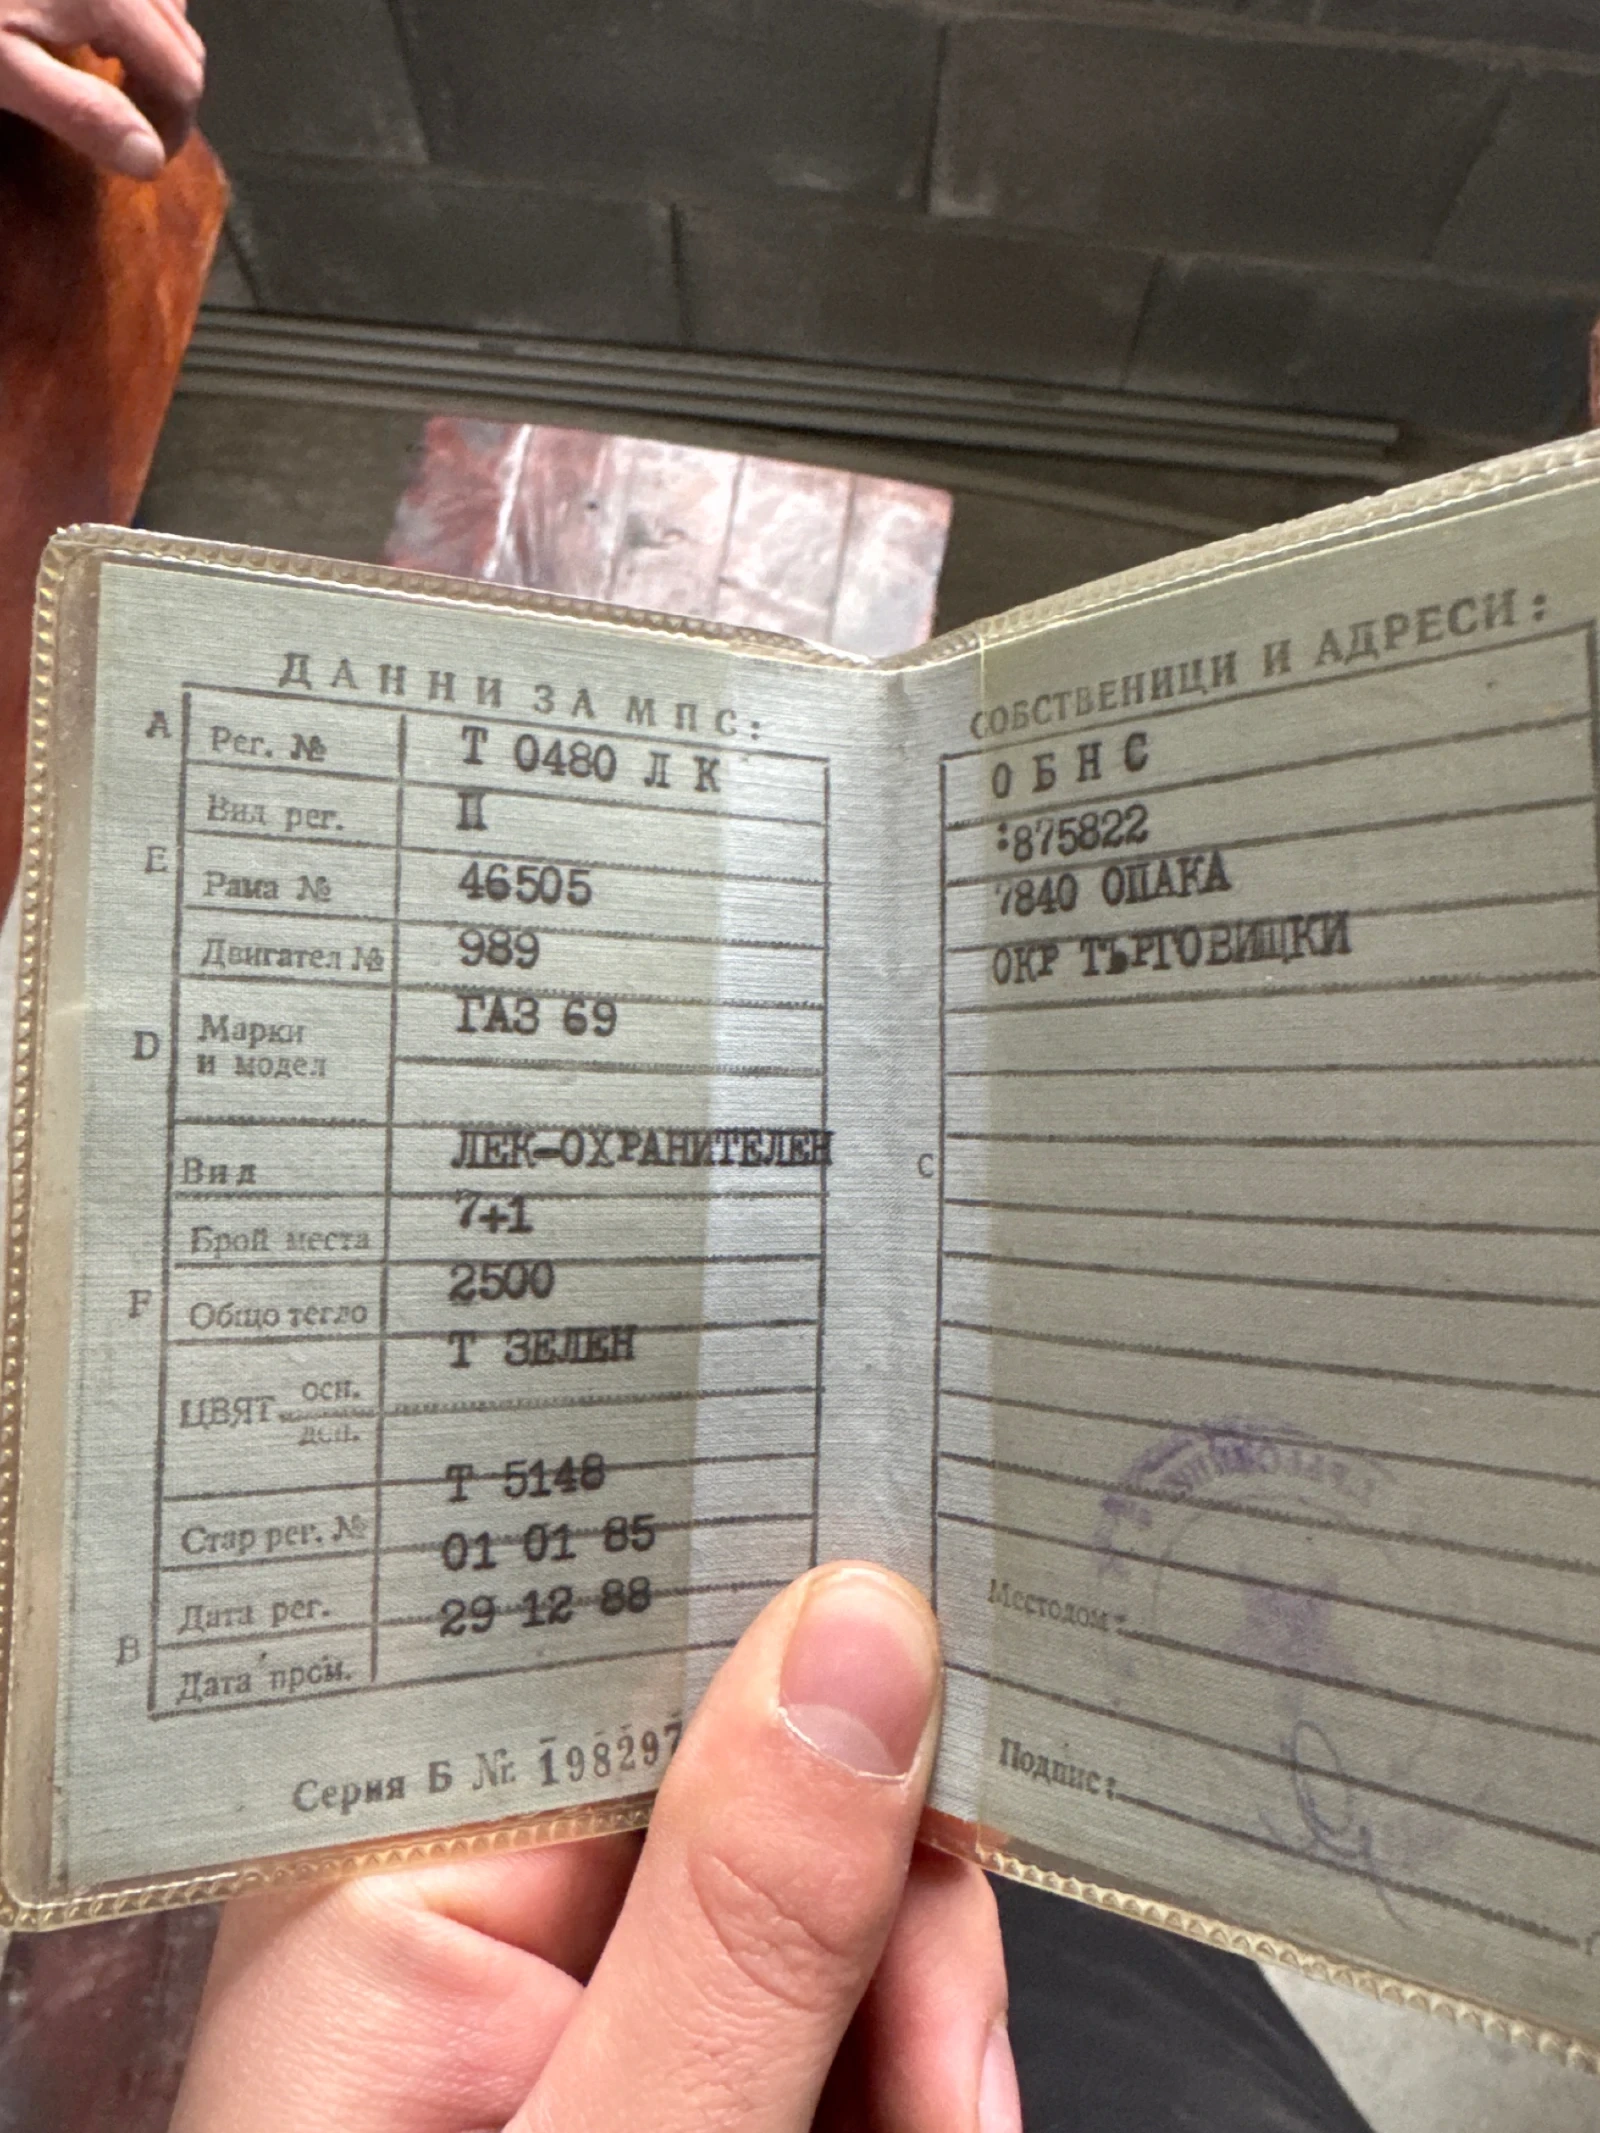 ДАННИ ЗА МПС:
A
Рег. №
Т 0480 Л К
Вид рег.
П
E
Рама №
46505
Двигател №
989
D
Марки
и модел
ГАЗ 69
Вид
ЛЕК-ОХРАНИТЕЛЕН
Брой места
7+1
F
Общо тегло
2500
ЦВЯТ осн.
доп.
Т ЗЕЛЕН
Стар рег. №
Т 5148
Дата рег.
01 01 85
B
Дата пром.
29 12 88
Серия Б Nr. 198297
СОБСТВЕНИЦИ И АДРЕСИ:
О Б Н С
:875822
7840 ОПАКА
ОКР ТЪРГОВИЩКИ
C
Местодом:
Подпис: